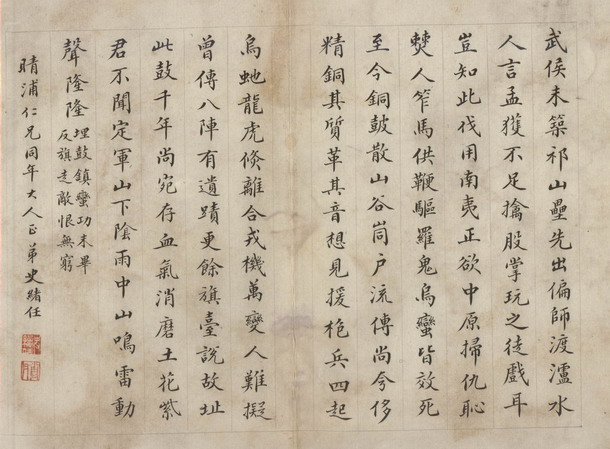 武侯未築祁山壘先出偏師渡瀘水
人言孟獲不足擒股掌玩之徒戲耳
豈知此伐用南夷正欲中原掃仇恥
僰人笮馬供鞭驅羅鬼烏蠻皆效死
至今銅皷散山谷峝戶流傳尚夸侈
精銅其質革其音想見援枹兵四起
鳥虵龍虎倏離合戎機萬變人難擬
曾傳八陣有遺蹟更餘旗臺說故址
此鼓千年尚宛存血氣消磨土花紫
君不聞定軍山下陰雨中山鳴雷動
聲隆隆
埋鼓鎮蠻功未畢
反旗走敵恨無窮
晴浦仁兄同年大人正弟史緒任